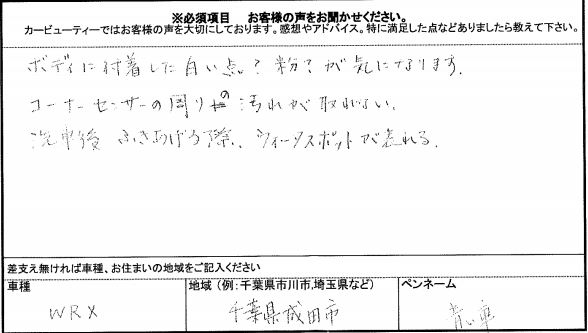 ※必須項目　お客様の声をお聞かせください。
カービューティーではお客様の声を大切にしております。感想やアドバイス。特に満足した点などありましたら教えて下さい。
ボディに付着した白い点？粉？が気になります。
コーナーセンサーの周りの汚れが取れない。
洗車後ふきあげる際、ウィータスポットが表れる。
差支え無ければ車種、お住まいの地域をご記入ください
車種　地域（例：千葉県市川市,埼玉県など）　ペンネーム
WRX　千葉県成田市　青い車